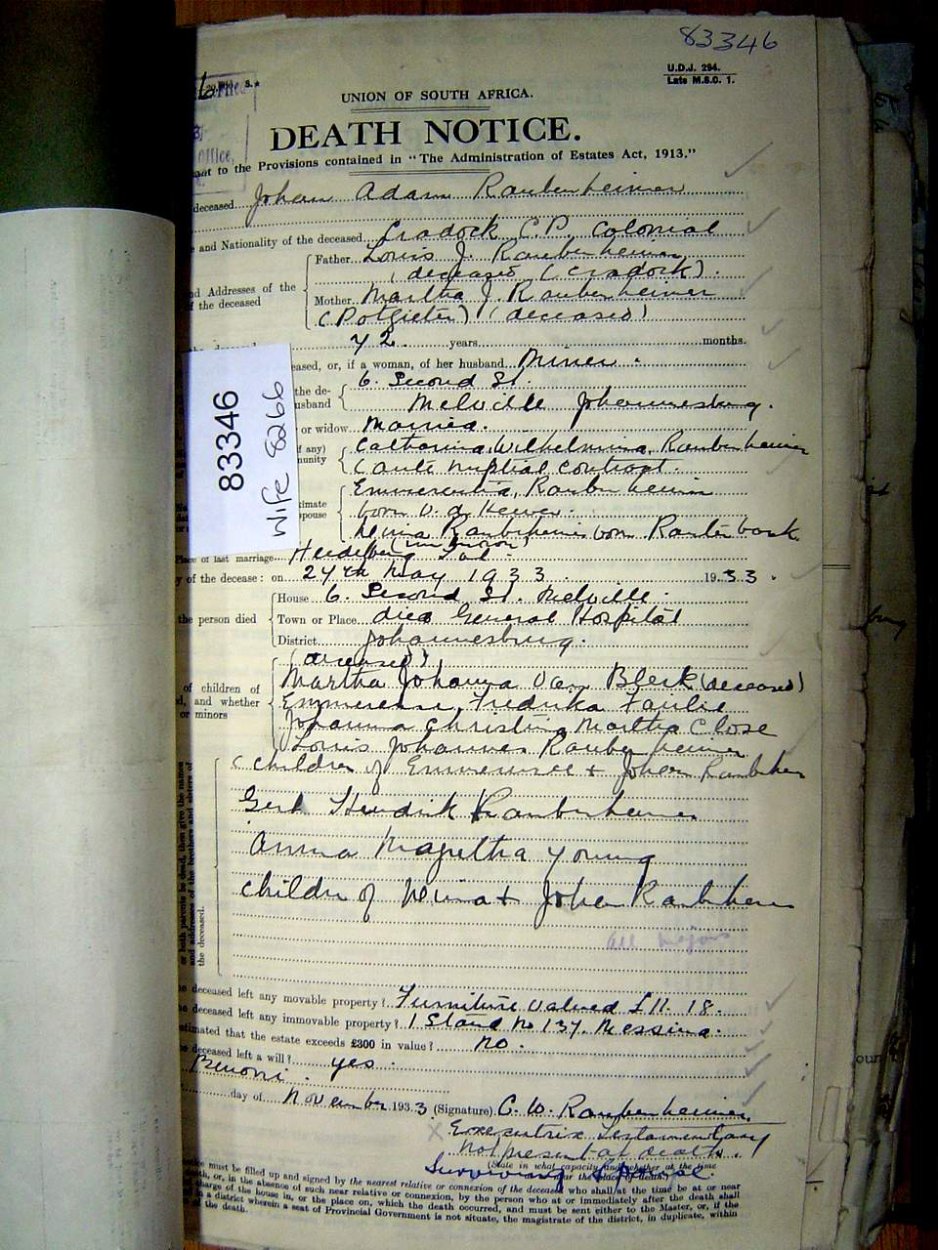 83346
U.D.J. 294.
Late M.S.C. 1.
UNION OF SOUTH AFRICA.
DEATH NOTICE.
to the Provisions contained in "The Administration of Estates Act, 1913."
deceased Johan Adam Raubenheimer
and Nationality of the deceased Cradock C.P. Colonial
Father Louis J. Raubenheimer
(deceased) (Cradock).
Addresses of the
of the deceased
Mother Martha J. Raubenheimer
(Potgieter) (deceased)
72 years months.
eased, or, if a woman, of her husband Miner.
the de-
usband
6. Second St.
Melville Johannesburg.
or widow Married.
if any)
Catharina Wilhelmina Raubenheimer
(ante nuptial contract.
timate
pouse
Raubenheimer
born v. d.
Raubenheimer born Rautenbach
Place of last marriage Heidelberg
of the decease: on 24th May 1933. 1933.
the person died
House 6. Second St. Melville.
Town or Place died General Hospital
District Johannesburg.
(deceased)
of children of
and whether
or minors
Martha Johanna Van Blerk (deceased)
Fredrika
Johanna Christina Martha Close
Louis Johannes Raubenheimer
(children of Emmerence + Johan Raubenheimer
Gert Hendrik Raubenheimer
Anna Magritha Young
children of + Johan Raubenheimer
all majors
or both parents be dead, then give the names
and addresses of the brothers and sisters of
the deceased.
83346
Wife 8266
deceased left any movable property? Furniture valued £11. 18.
deceased left any immovable property? 1 Stand No 137. Messina.
timated that the estate exceeds £300 in value? No.
deceased left a will? yes.
Benoni.
day of November 1933 (Signature) C. W. Raubenheimer
X Executrix Testamentary
Not present at death.
(State in what capacity and whether at the time
Surviving Spouse
must be filled up and signed by the nearest relative or connexion of the deceased who shall at the time be at or near
th, or, in the absence of such near relative or connexion, by the person who at or immediately after the death shall
charge of the house in, or the place on, which the death occurred, and must be sent either to the Master, or, if the
a district wherein a seat of Provincial Government is not situate, the magistrate of the district, in duplicate, within
the death.